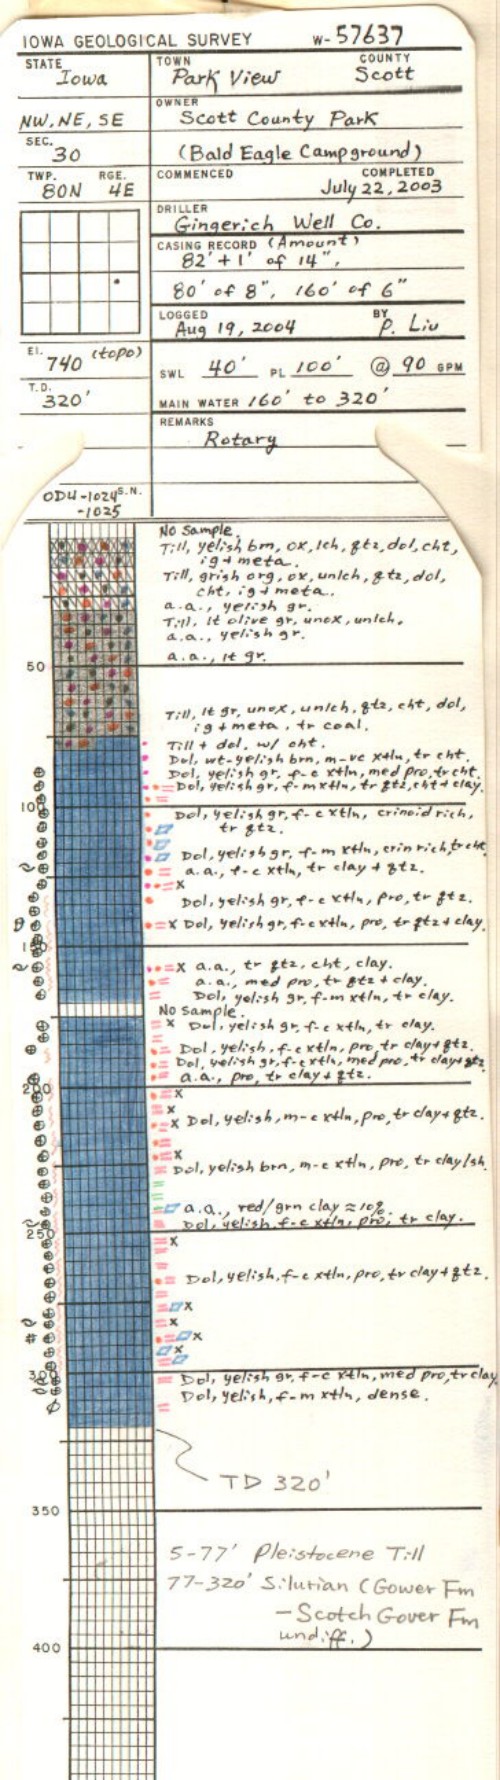 IOWA GEOLOGICAL SURVEY W-57637
STATE Iowa TOWN Park View COUNTY Scott
NW, NE, SE OWNER Scott County Park
SEC. 30 (Bald Eagle Campground)
TWP. 80N RGE. 4E COMMENCED COMPLETED July 22, 2003
DRILLER Gingerich Well Co.
CASING RECORD (Amount)
82' + 1' of 14",
80' of 8", 160' of 6"
LOGGED Aug 19, 2004 BY P. Liu
El. 740 (topo) SWL 40' PL 100' @ 90 GPM
T.D. 320' MAIN WATER 160' to 320'
REMARKS Rotary
ODU-1024 S.N.
-1025
No Sample.
Till, yelish brn, ox, lch, qtz, dol, cht,
ig + meta.
Till, grish org, ox, unlch, qtz, dol,
cht, ig + meta.
a.a., yelish gr.
Till, lt olive gr, unox, unlch.
a.a., yelish gr.
a.a., lt gr.
50
Till, lt gr, unox, unlch, qtz, cht, dol,
ig + meta, tr coal.
Till + dol, w/ cht.
Dol, wt-yelish brn, m-vc xtln, tr cht.
Dol, yelish gr, f-c xtln, med pro, tr cht.
Dol, yelish gr, f-m xtln, tr qtz, cht + clay.
100
Dol, yelish gr, f-c xtln, crinoid rich,
tr qtz.
Dol, yelish gr, f-m xtln, crin rich, tr cht.
a.a., f-c xtln, tr clay + qtz.
x
Dol, yelish gr, f-c xtln, pro, tr qtz.
x Dol, yelish gr, f-c xtln, pro, tr qtz + clay.
150
x a.a., tr qtz, cht, clay.
a.a., med pro, tr qtz + clay.
Dol, yelish gr, f-m xtln, tr clay.
No Sample.
x Dol, yelish gr, f-c xtln, tr clay.
Dol, yelish, f-c xtln, pro, tr clay + qtz.
Dol, yelish gr, f-c xtln, med pro, tr clay + qtz.
a.a., pro, tr clay + qtz.
200
x
x
x Dol, yelish, m-c xtln, pro, tr clay + qtz.
x
Dol, yelish brn, m-c xtln, pro, tr clay/sh.
a.a., red/grn clay ≈ 10%.
Dol, yelish, f-c xtln, pro, tr clay.
250
x
Dol, yelish, f-c xtln, pro, tr clay + qtz.
x
x
x
x
300
Dol, yelish gr, f-c xtln, med pro, tr clay
Dol, yelish, f-m xtln, dense.
TD 320'
350
5-77' Pleistocene Till
77-320' Silurian (Gower Fm
- Scotch Gover Fm
undiff.)
400